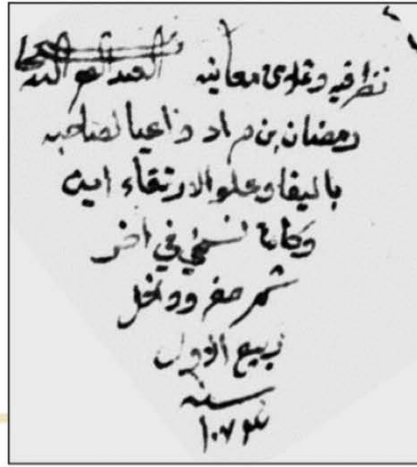 نظر فيه وتلوى معانيه العبد الفقير الى الله
رمضان بن مراد داعيا لصاحبه
باليقا وعلو الارتقاء امين
وكان نسخي في اخر
شهر صفر ودخل
ربيع الاول
سنه
١٠٧